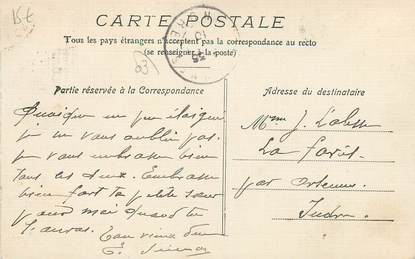 15€
CARTE POSTALE
Tous les pays étrangers n'acceptent pas la correspondance au recto
(se renseigner à la poste)
Partie réservée à la Correspondance
Quoique un peu
je ne vous oublie pas.
je vous embrasse bien
tous les deux. Embrasse
bien fort ta petite sœur
pour moi quand tu
l'auras. Ton vieux
Adresse du destinataire
Mme J.
La Forêt
par
Indre